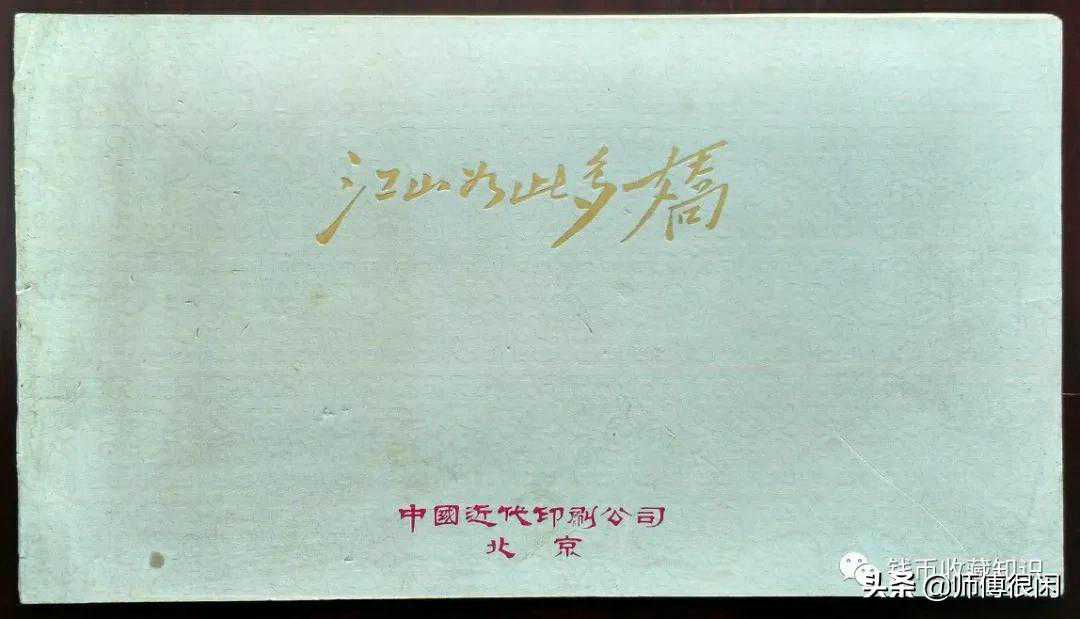 江山如此多娇
中國近代印刷公司
北京
钱币收藏知识
头条 @师傅很闲